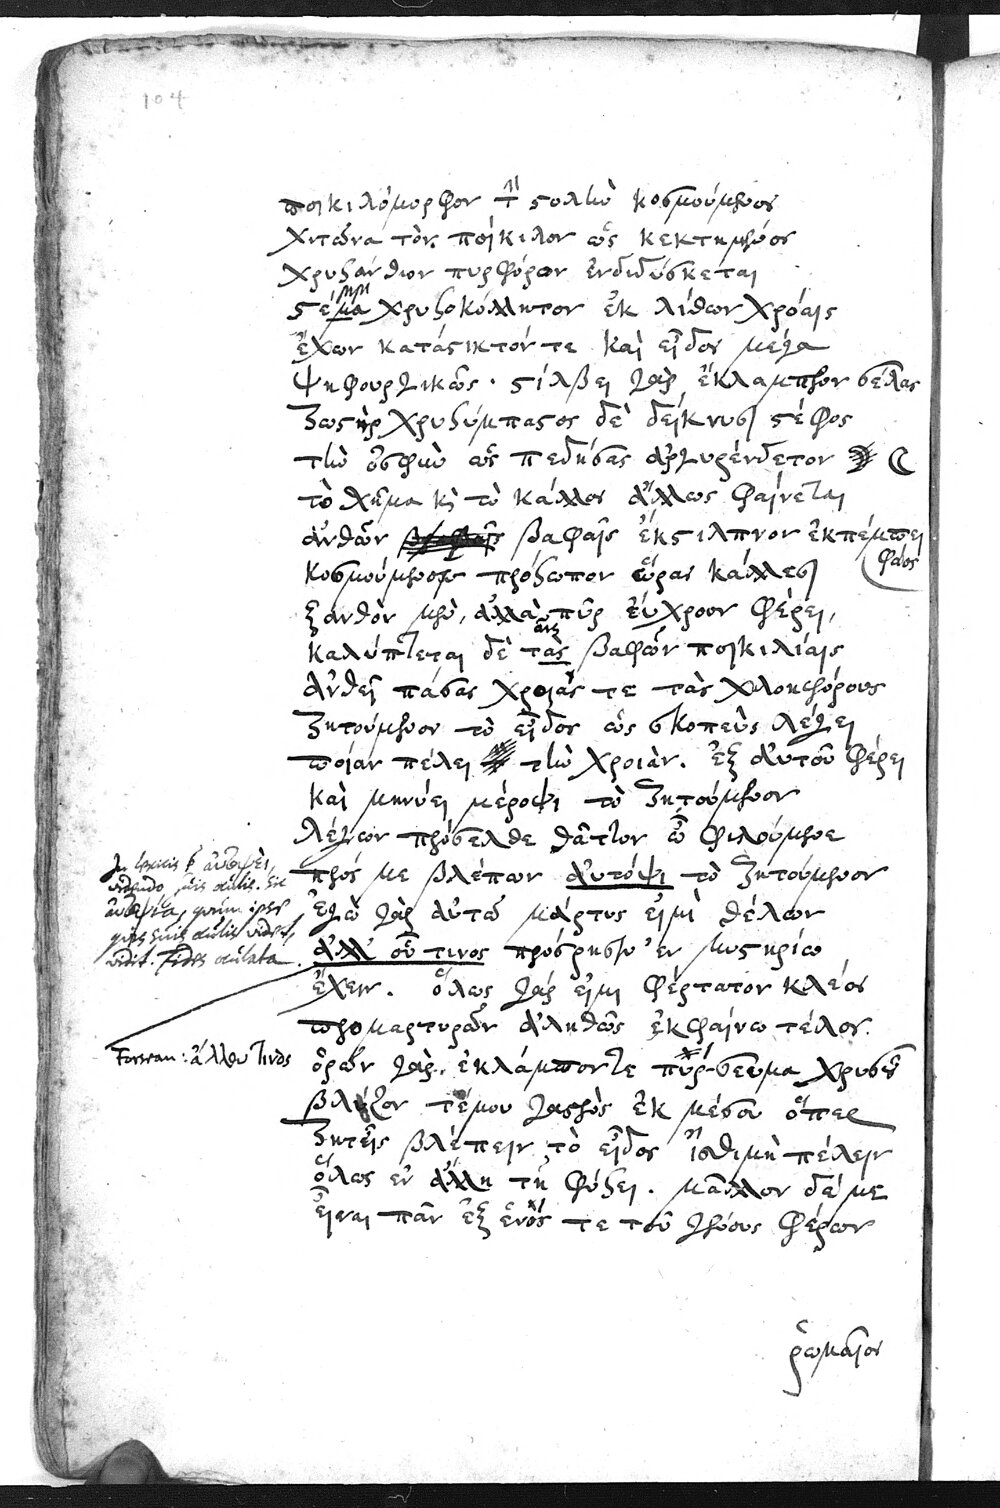 104
ποικιλόμορφον τὴν στολὴν κοσμούμενος
χιτῶνα τὸν ποίκιλον ὡς κεκτημένος
χρυσάνθιον πυρφόρων ἐνδιδύσκεται
στέμμα χρυσοκόλλητον ἐκ λίθων χρόαις
ἔχων κατάστικτόν τε καὶ εἶδος μέγα
ψηφουργικῶς. στίλβει γὰρ ἐκλάμπων σέλας
ζωστὴρ χρυσόμπαστος δὲ δείκνυσι στέφος
τὴν ὀσφὺν ὡς πεδήσας ἀργυρένδετον ☾
τὸ σχῆμα καὶ τὸ κάλλος ἄλλως φαίνεται
ἀνθῶν βαφαῖς ἐκστιλπνον ἐκπέμπει
φάος
κοσμούμενος πρόσωπον ὥρας κάλλεσι
ξανθὸν μὲν, ἀλλὰ πῦρ εὔχροον φέρει,
καλύπτεται δὲ τὰς βαφῶν ποικιλίαις
ἀνθεῖ πάσας χροιάς τε τὰς χλοηφόρους
ζητούμενον τὸ εἶδος ὡς σκοπεὺς λέγει
ποίαν πέλει τὴν χροιάν. ἐξ αὐτοῦ φέρει
καὶ μηνύει μέροψι τὸ ζητούμενον
λέγων πρόσελθε θᾶττον ὦ φιλούμενε
πρός με βλέπων αὐτόψι τὸ ζητούμενον
ἐγὼ γὰρ αὐτῶ μάρτυς εἰμὶ θέλων
ἀλλ' οὔ τινος πρόσρησιν ἐν μυστηρίω
ἔχειν. ὅλως γάρ εἰμι φέρτατον κλέος
προμαρτυρῶν ἀληθῶς ἐκφαίνω τέλος.
ὁρῶν γὰρ ἐκλάμποντε πῦρσευμα χρυσοῦ
βλύζον τέμου γαστρὸς ἐκ μέσου ὅπερ
ζητεῖς βλέπειν τὸ εἶδος πέλειν
ὅλως ἐν ἄλλη τῆ φύσει. μᾶλλον δέ με
εἶναι πᾶν ἐξ ἑνός τε τοῦ γένους φέρων
ῥωμαῖος
suis oculis. sic
quum ipse
quis suis oculis
vidit. Fides oculata
Forsean: ἄλλου τινὸς